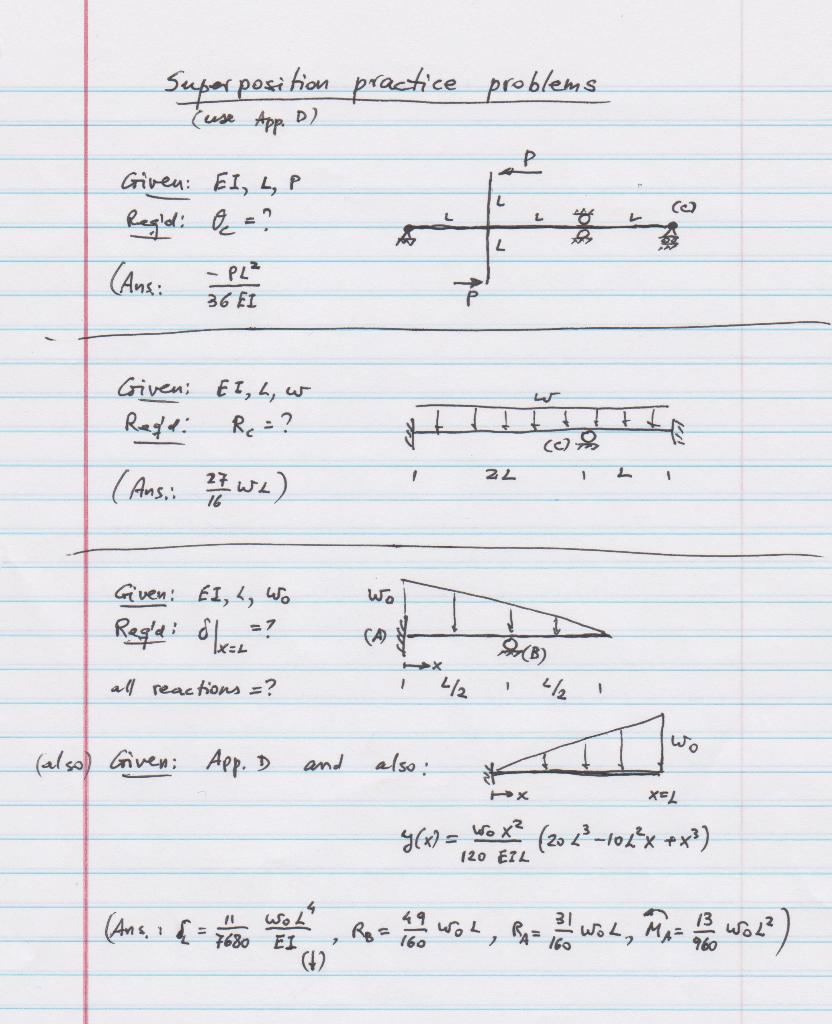 Superposition practice problems
(use App. D)
Given: EI, L, P
Req'd: θc = ?
(Ans: -PL²/36EI
P
L
L L L (C)
L
P
Given: EI, L, w
Req'd: Rc = ?
(Ans.: 27/16 wL)
w
(C)
2L L
Given: EI, L, w₀
Req'd: δ|x=L = ?
all reactions = ?
w₀
(A) (B)
x
L/2 L/2
(also) Given: App. D and also:
w₀
x x=L
y(x) = w₀x²/120EIL (20L³ - 10L²x + x³)
(Ans.: δL = 11/7680 w₀L⁴/EI (↓), RB = 49/160 w₀L, RA = 31/160 w₀L, MA = 13/960 w₀L²)